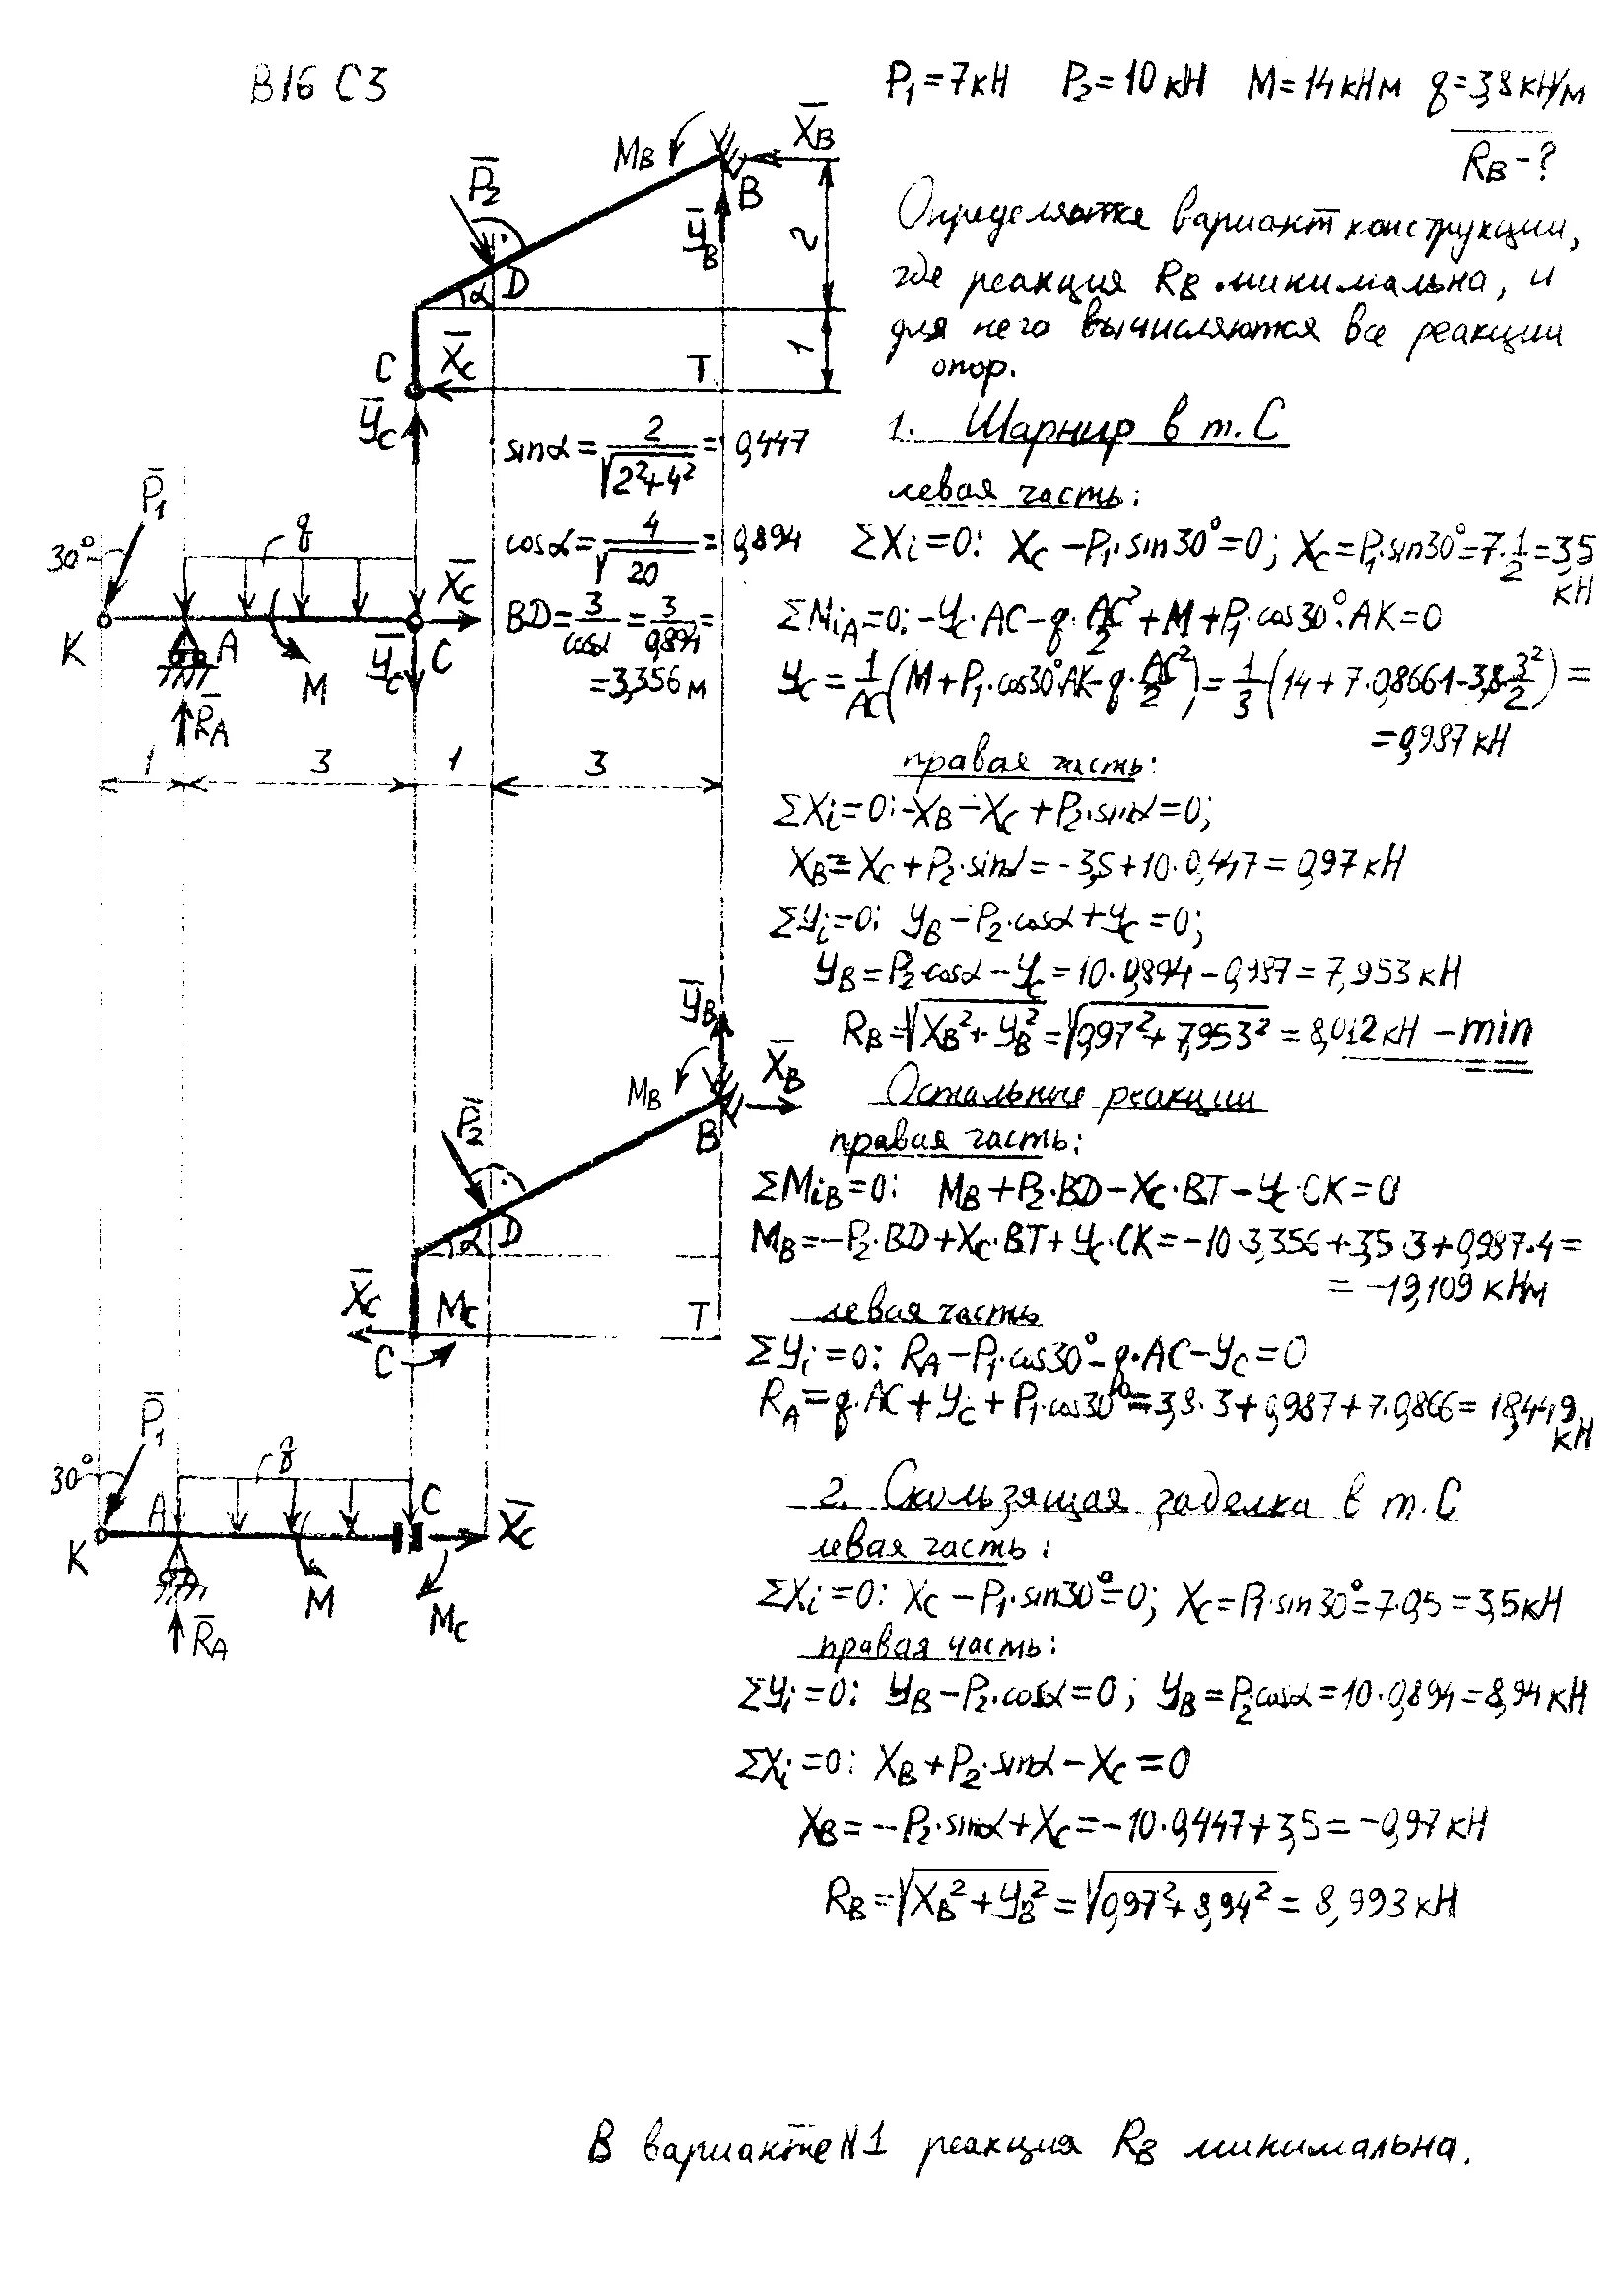 B16 C3
P₁=7кН P₂=10кН M=14кНм q=3,8кН/м
R_B-?
Определяется вариант конструкции,
где реакция R_B минимальна, и
для него вычисляются все реакции
опор.
M_B
X̅_B
P̅₂
B
Y̅_B
D
α
2
1
C
X̅_C
T
Y̅_C
sinα=2/√(2²+4²)=0,447
cosα=4/√20=0,894
BD=3/cosα=3/0,894=
=3,356м
P̅₁
30°
q
X̅_C
K
A
M
Y̅_C
C
R̅_A
1 3 1 3
1. Шарнир в т. C
левая часть:
ΣXi=0: X_C-P₁·sin30°=0; X_C=P₁·sin30°=7·1/2=3,5
кН
ΣM_iA=0: -Y_C·AC-q·AC²/2+M+P₁·cos30°·AK=0
Y_C=1/AC(M+P₁·cos30°·AK-q·AC²/2)=1/3(14+7·0,866·1-3,8·3²/2)=
=0,987кН
правая часть:
ΣXi=0: -X_B-X_C+P₂·sinα=0;
X_B=X_C+P₂·sinα=-3,5+10·0,447=0,97кН
ΣYi=0: Y_B-P₂·cosα+Y_C=0;
Y_B=P₂cosα-Y_C=10·0,894-0,987=7,953кН
R_B=√(X_B²+Y_B²)=√(0,97²+7,953²)=8,012кН-min
Остальные реакции
правая часть:
ΣM_iB=0: M_B+P₂·BD-X_C·BT-Y_C·CK=0
M_B=-P₂·BD+X_C·BT+Y_C·CK=-10·3,356+3,5·3+0,987·4=
=-19,109кНм
левая часть
ΣYi=0: R_A-P₁·cos30°-q·AC-Y_C=0
R_A=q·AC+Y_C+P₁·cos30°=3,8·3+0,987+7·0,866=18,449
кН
Y̅_B
X̅_B
M_B
P̅₂
B
D
α
X̅_C
M_C
T
C
P̅₁
30°
q
A
C
X̅_C
K
M
M_C
R̅_A
2. Скользящая заделка в т. C
левая часть:
ΣXi=0: X_C-P₁·sin30°=0; X_C=P₁·sin30°=7·0,5=3,5кН
правая часть:
ΣYi=0: Y_B-P₂·cosα=0; Y_B=P₂cosα=10·0,894=8,94кН
ΣXi=0: X_B+P₂·sinα-X_C=0
X_B=-P₂·sinα+X_C=-10·0,447+3,5=-0,97кН
R_B=√(X_B²+Y_B²)=√(0,97²+8,94²)=8,993кН
В варианте N1 реакция R_B минимальна.